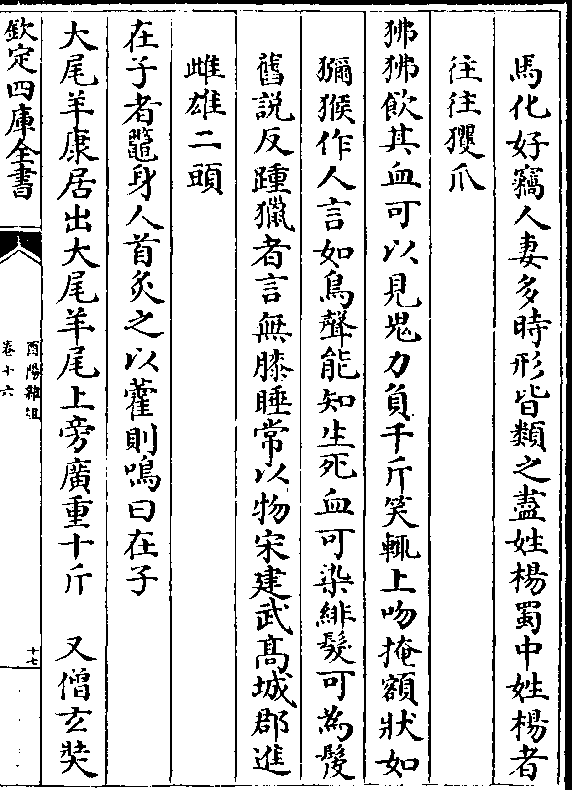 馬化好竊人妻多時形皆類之盡姓楊蜀中姓楊者
往往玃爪
狒狒飲其血可以見鬼力負千斤笑輒上吻掩額狀如
獼猴作人言如鳥聲能知生死血可染緋髮可為髲
舊說反踵獵者言無膝睡常以物宋建武髙城郡進
雌雄二頭
在子者鼈身人首炙之以藿則鳴曰在子
大尾羊康居出大尾羊尾上旁廣重十斤　又僧玄奘
欽定四庫全書
酉陽雜俎
卷十六
十七